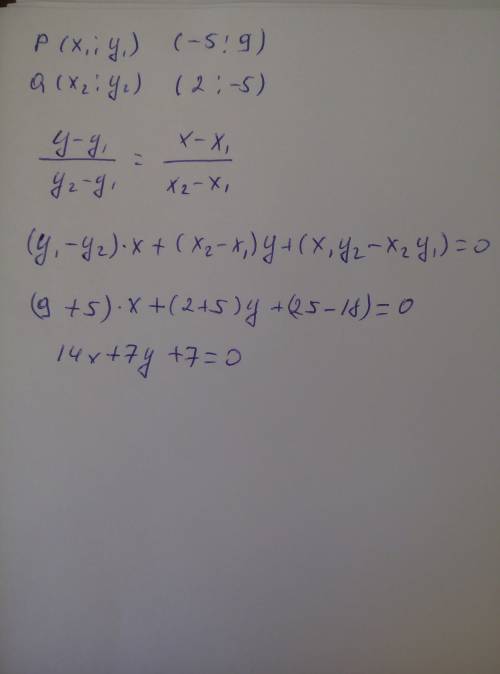 P (x₁; y₁) (-5; 9)
Q (x₂; y₂) (2; -5)
(y-y₁)/(y₂-y₁) = (x-x₁)/(x₂-x₁)
(y₁-y₂)·x+(x₂-x₁)y+(x₁y₂-x₂y₁)=0
(9+5)·x+(2+5)y+(25-18)=0
14x+7y+7=0